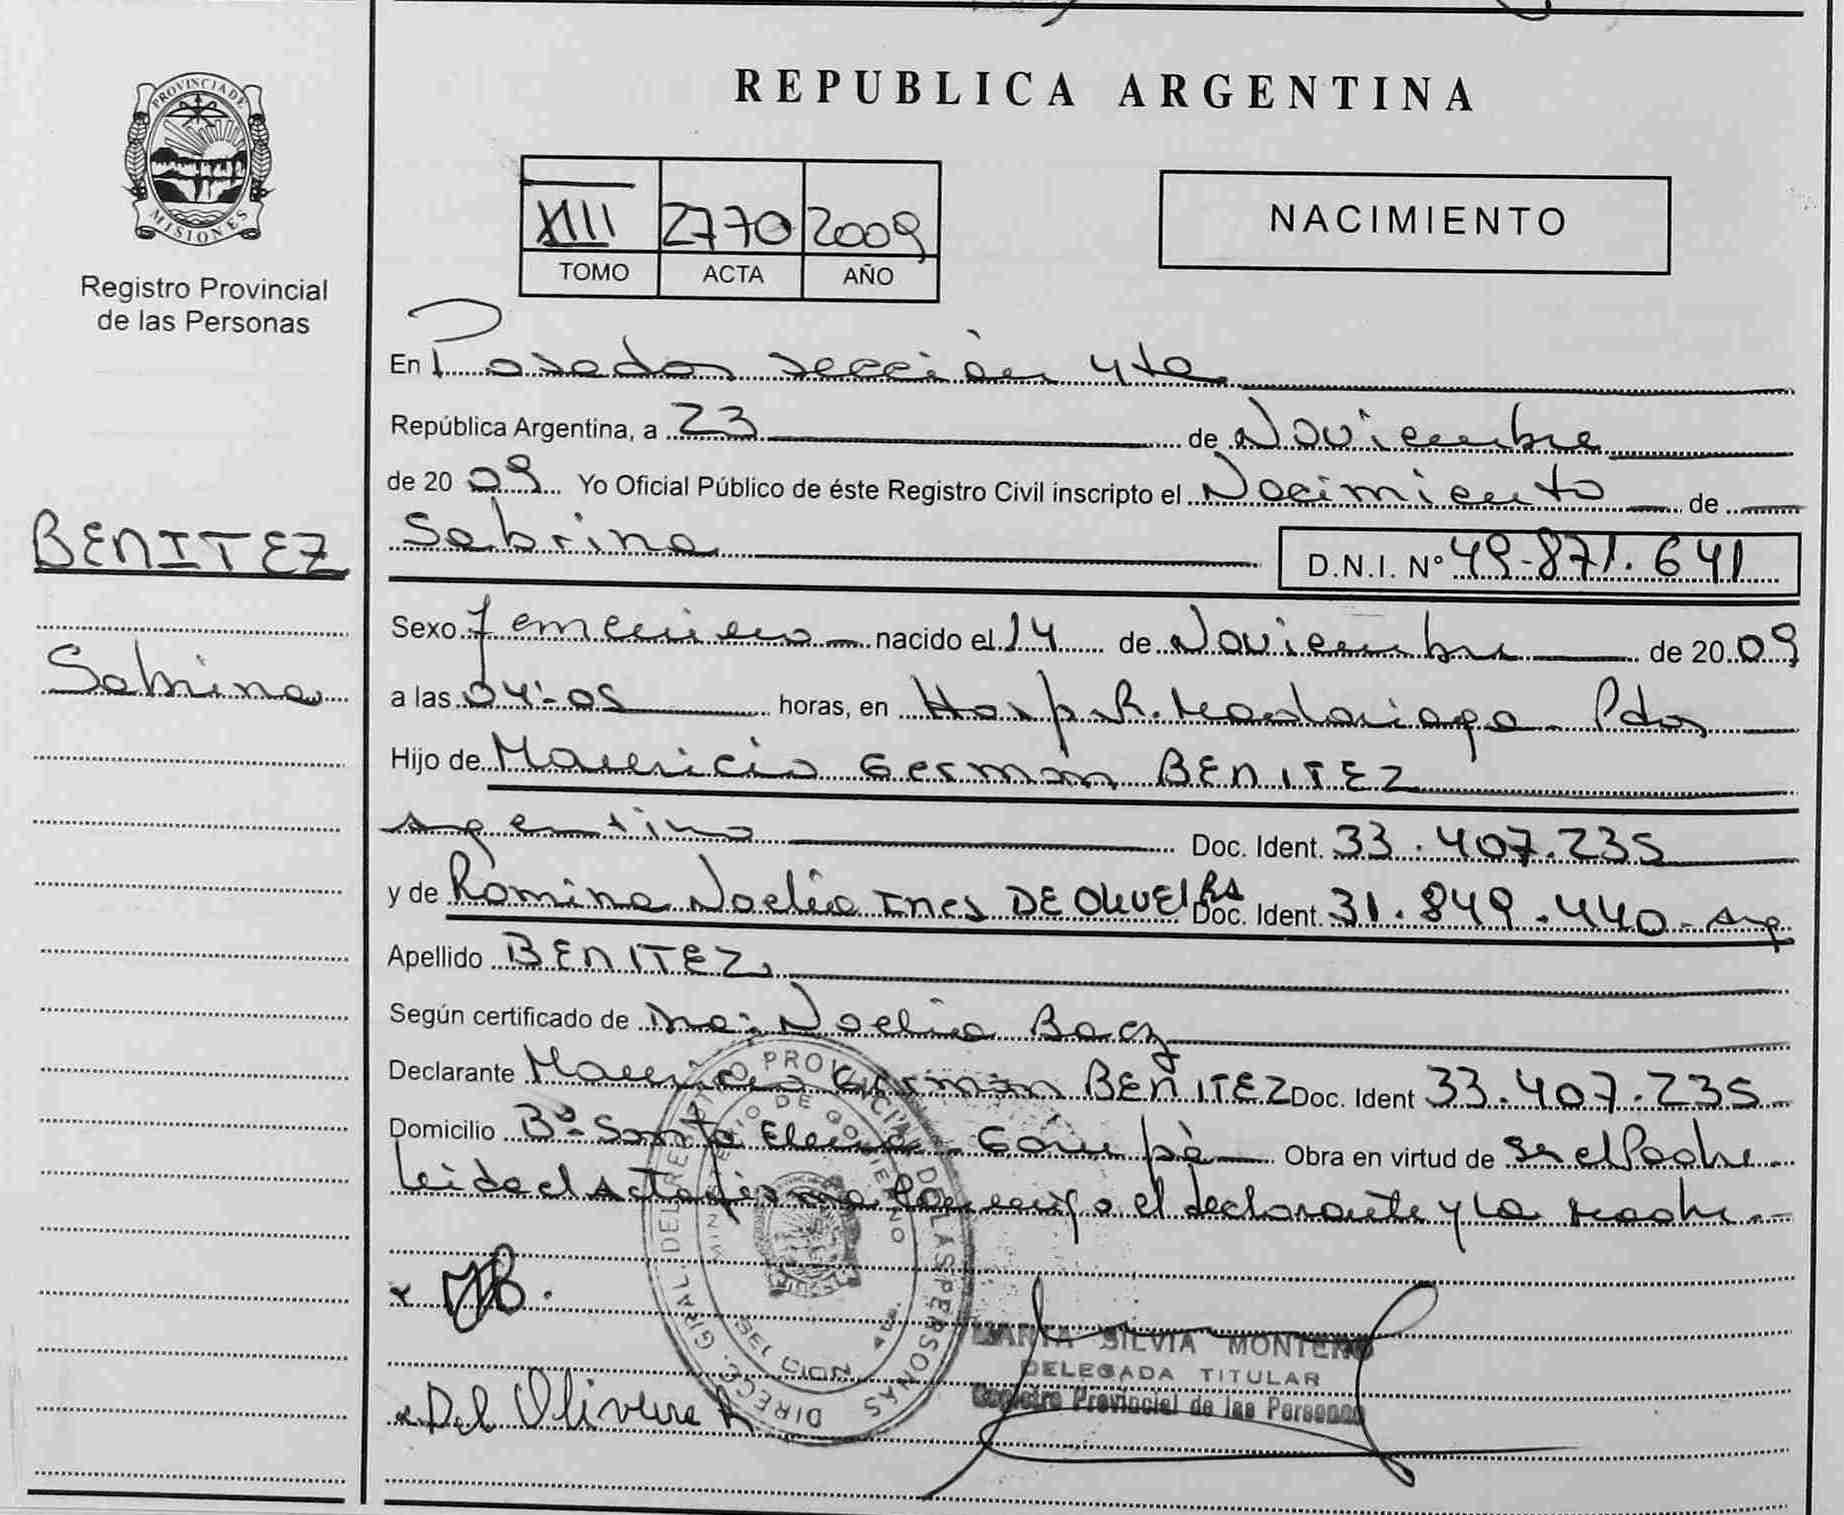 PROVINCIA DE
MISIONES
Registro Provincial
de las Personas
BENITEZ
Sabrina
REPUBLICA ARGENTINA
XIII 2770 2009
TOMO ACTA AÑO
NACIMIENTO
En Posadas sección 4ta
República Argentina, a 23 de Noviembre
de 20 09 Yo Oficial Público de éste Registro Civil inscripto el Nacimiento de
Sabrina D.N.I. N° 49.871.641
Sexo femenino nacido el 14 de Noviembre de 20 09
a las 04:05 horas, en Hosp. R. Madariaga - Pdas
Hijo de Mauricio German BENITEZ
argentino Doc. Ident. 33.407.235
y de Romina Noelia Ines DE OLIVEIRA Doc. Ident. 31.849.440 - Arg
Apellido BENITEZ
Según certificado de Noelia Baez
Declarante Mauricio German BENITEZ Doc. Ident 33.407.235
Domicilio B° Santa Elena - Garupá Obra en virtud de ser el Padre
Leida el Acta firma conmigo el declarante y la madre
x MB.
x De Olivera R
DIRECC. GRAL. DEL REGISTRO PROVINCIAL DE LAS PERSONAS
MINISTERIO DE GOBIERNO
MARTA SILVIA MONTERO
DELEGADA TITULAR
Registro Provincial de las Personas